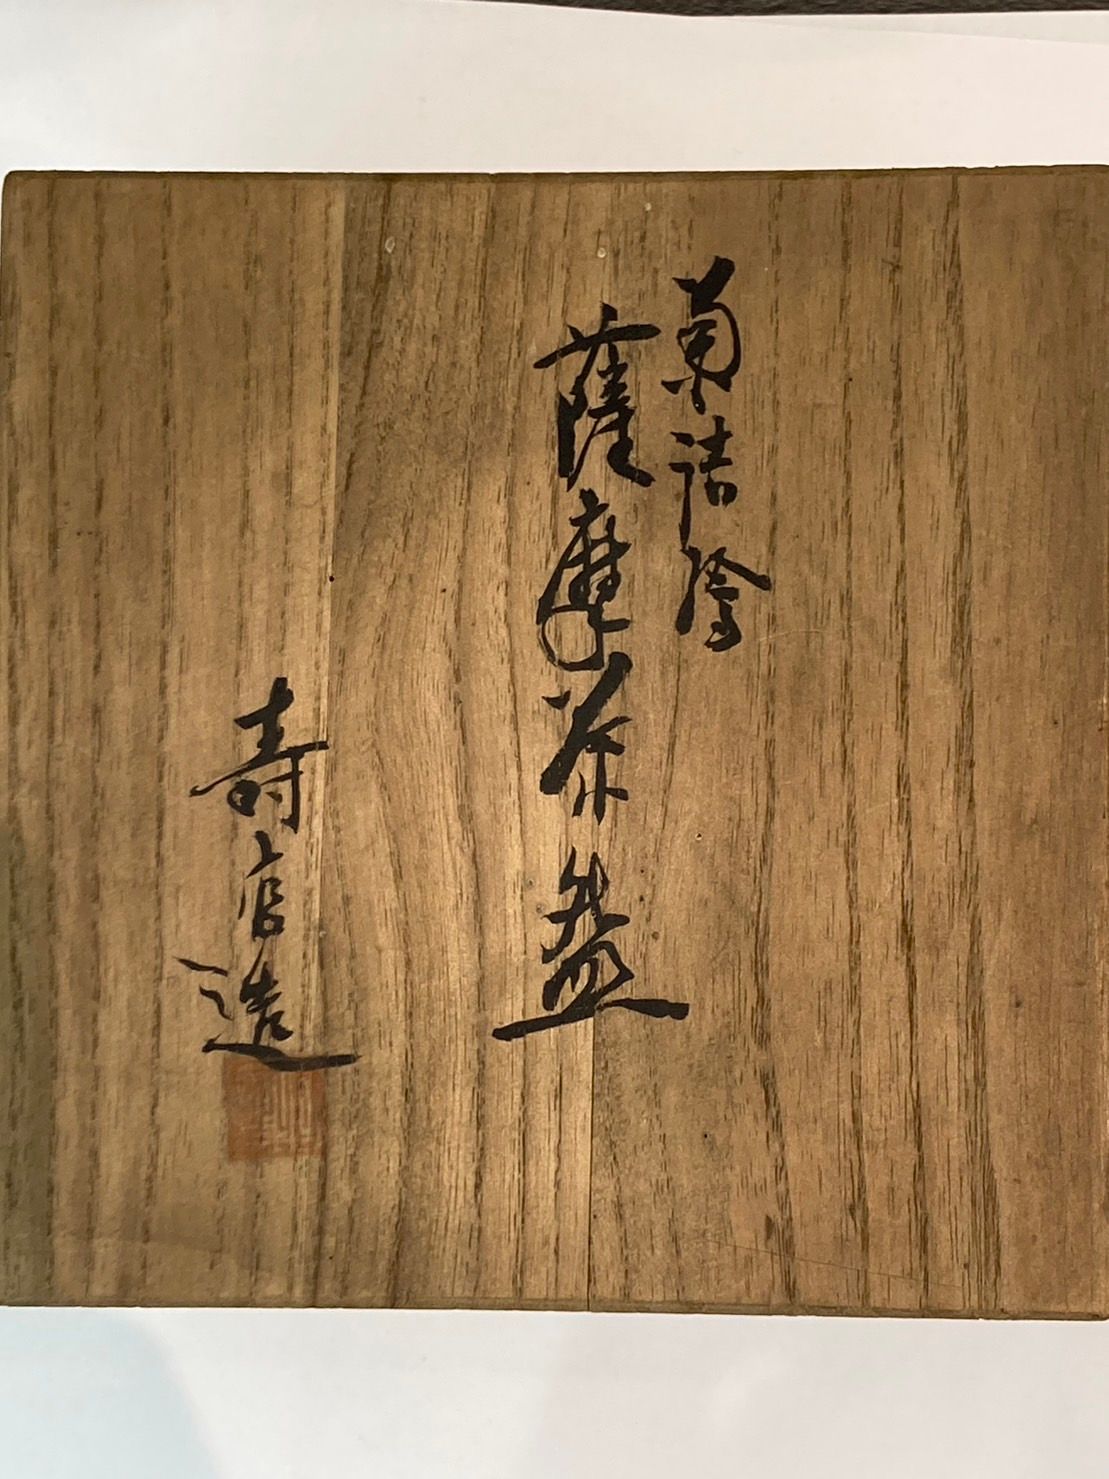 菊詰絵
薩摩茶盌
寿官造